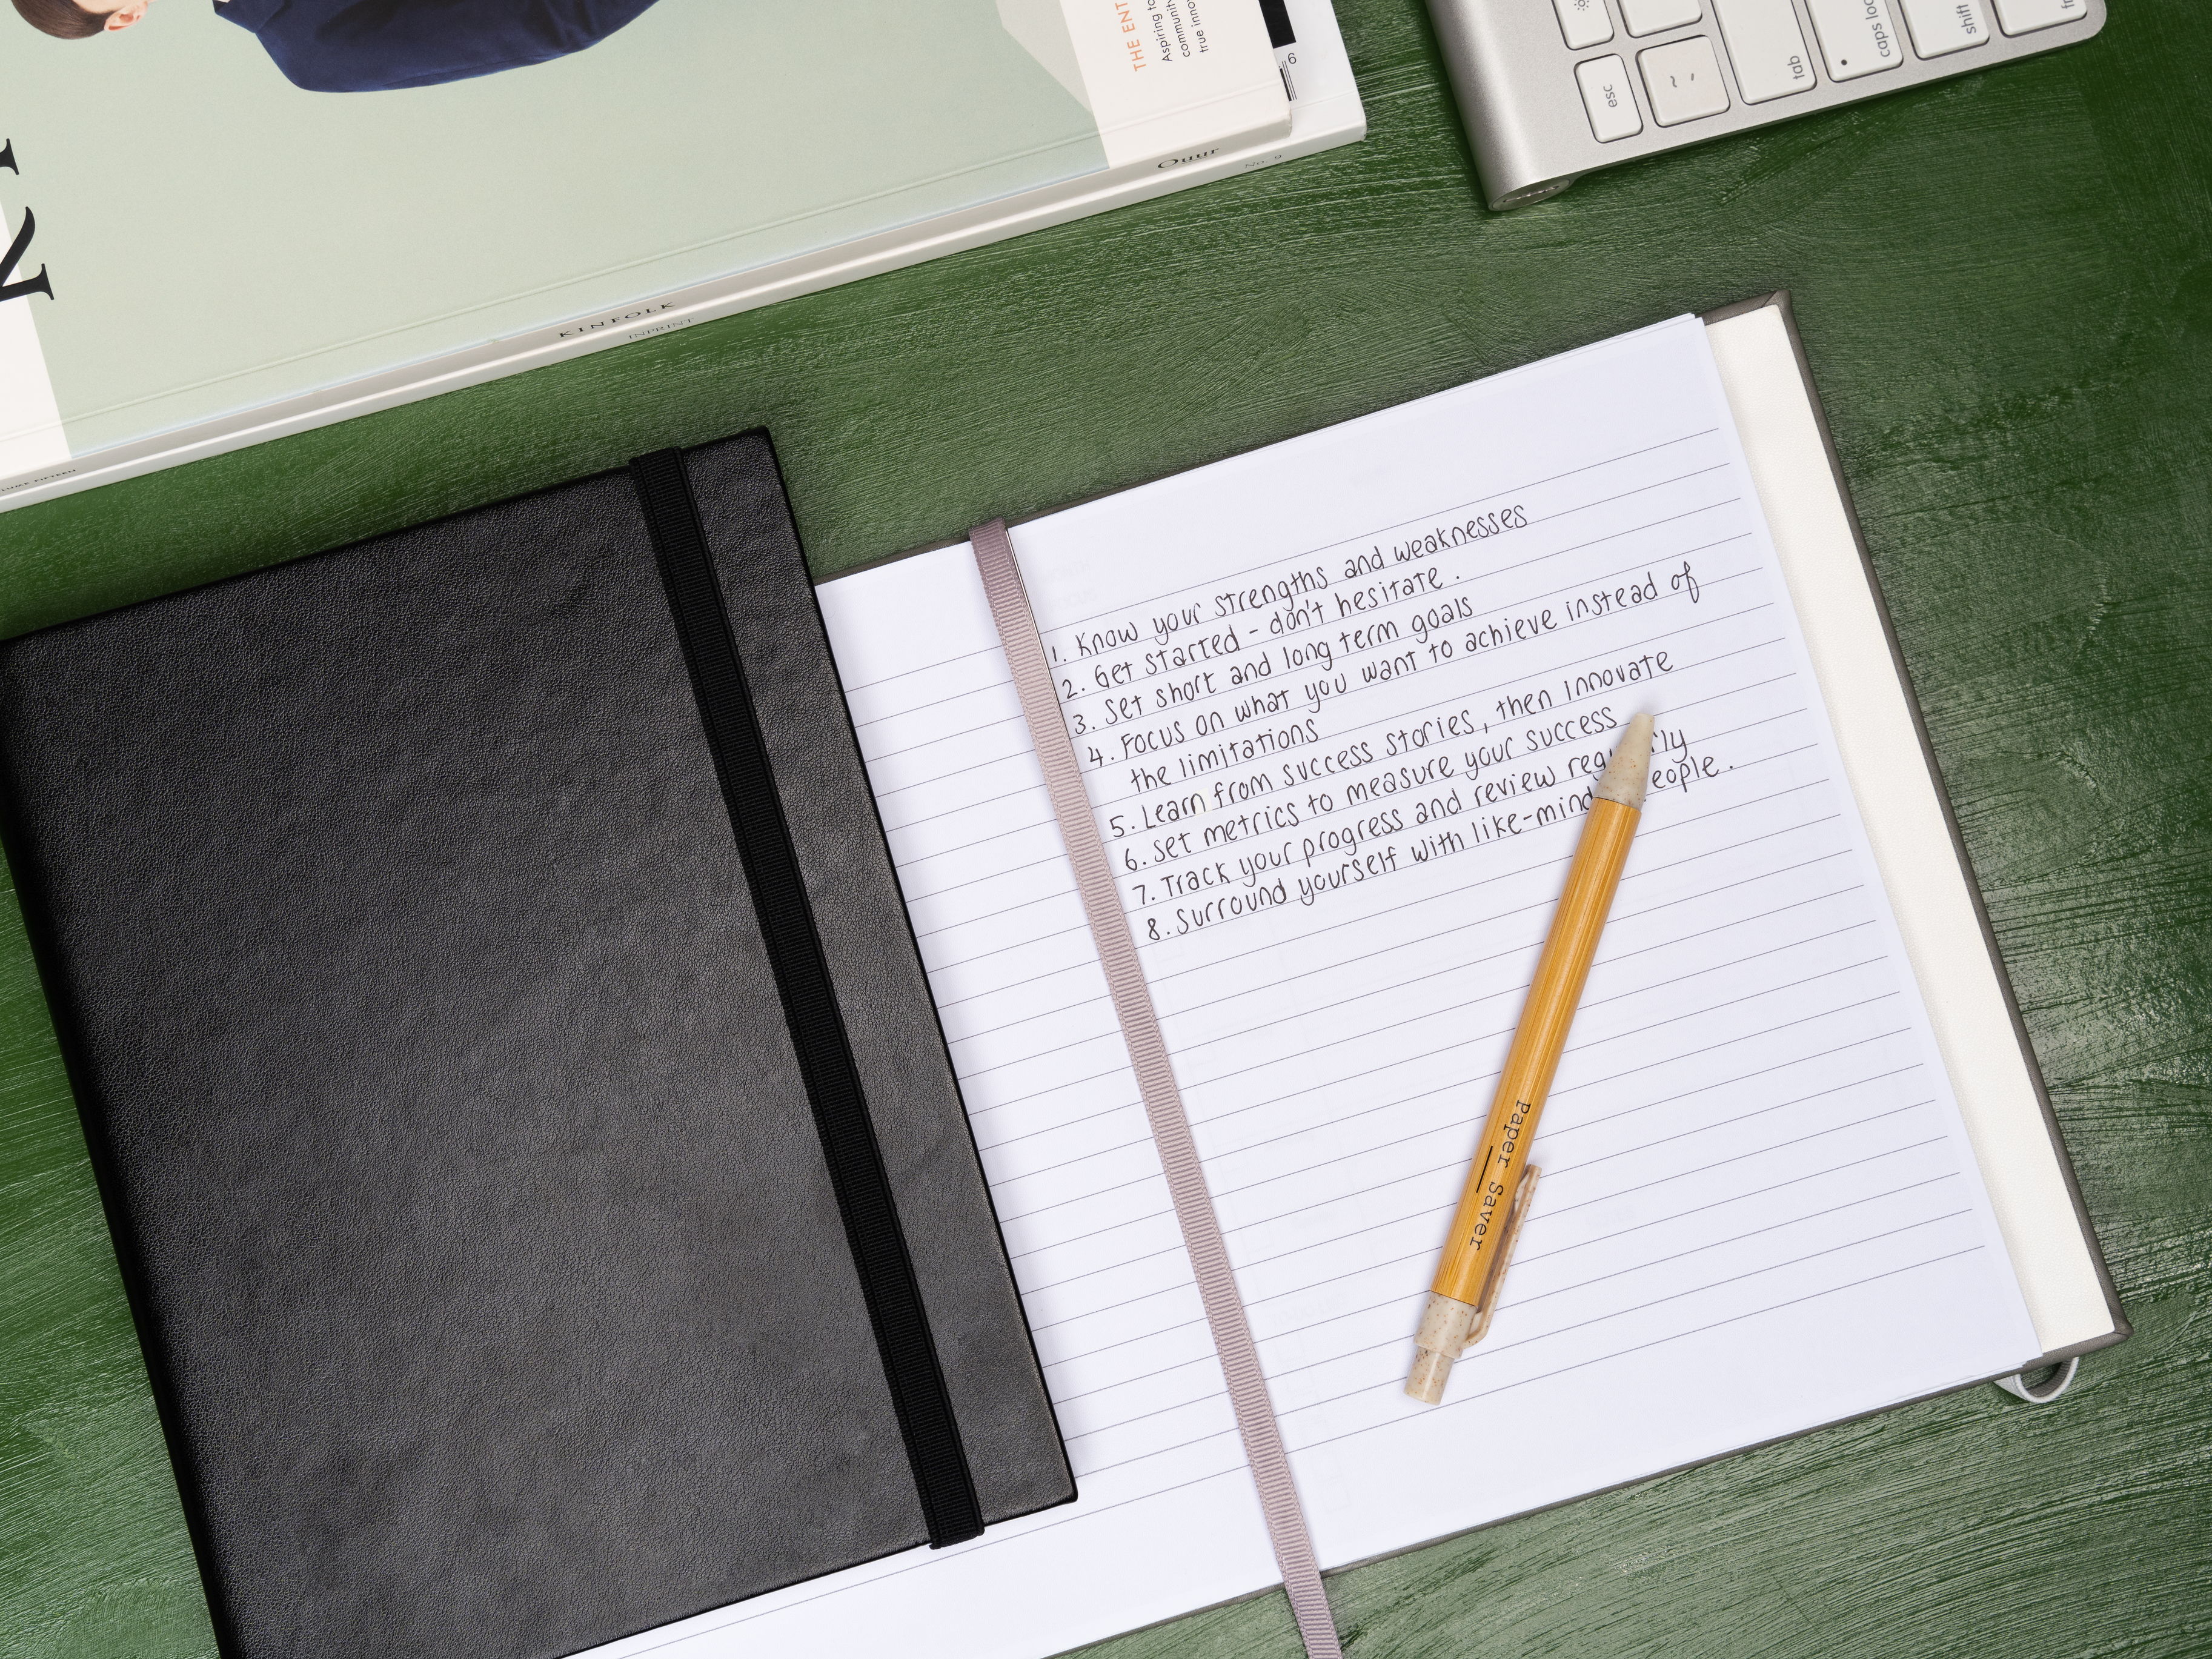 THE ENT
Aspiring to
communit
true inno
6
Ouur
No. 9
KINFOLK
INPRINT
N
esc
~ `
tab
caps loc
shift
1. Know your strengths and weaknesses
2. Get started - don't hesitate.
3. Set short and long term goals
4. Focus on what you want to achieve instead of
the limitations
5. Learn from success stories, then innovate
6. Set metrics to measure your success
7. Track your progress and review reg rly
8. Surround yourself with like-mind eople.
Paper Saver